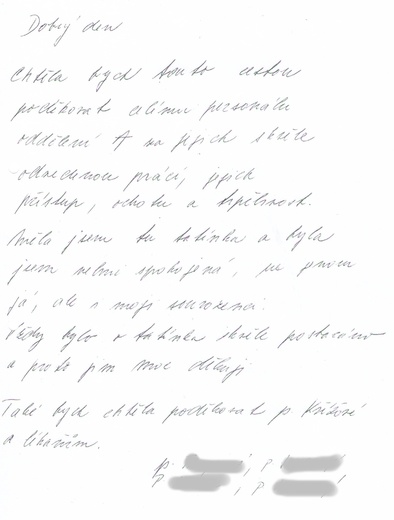 Dobrý den
Chtěla bych touto cestou
poděkovat celému personálu
oddělení A za jejich skvěle
odvedenou práci, jejich
přístup, ochotu a trpělivost.
Měla jsem tu tatínka a byla
jsem velmi spokojená, ne jenom
já, ale i moji sourozenci.
Vždy bylo o tatínka skvěle postaráno
a proto jim moc děkuji
Také bych chtěla poděkovat p. Křížové
a lékařům.
p. , p
p , p